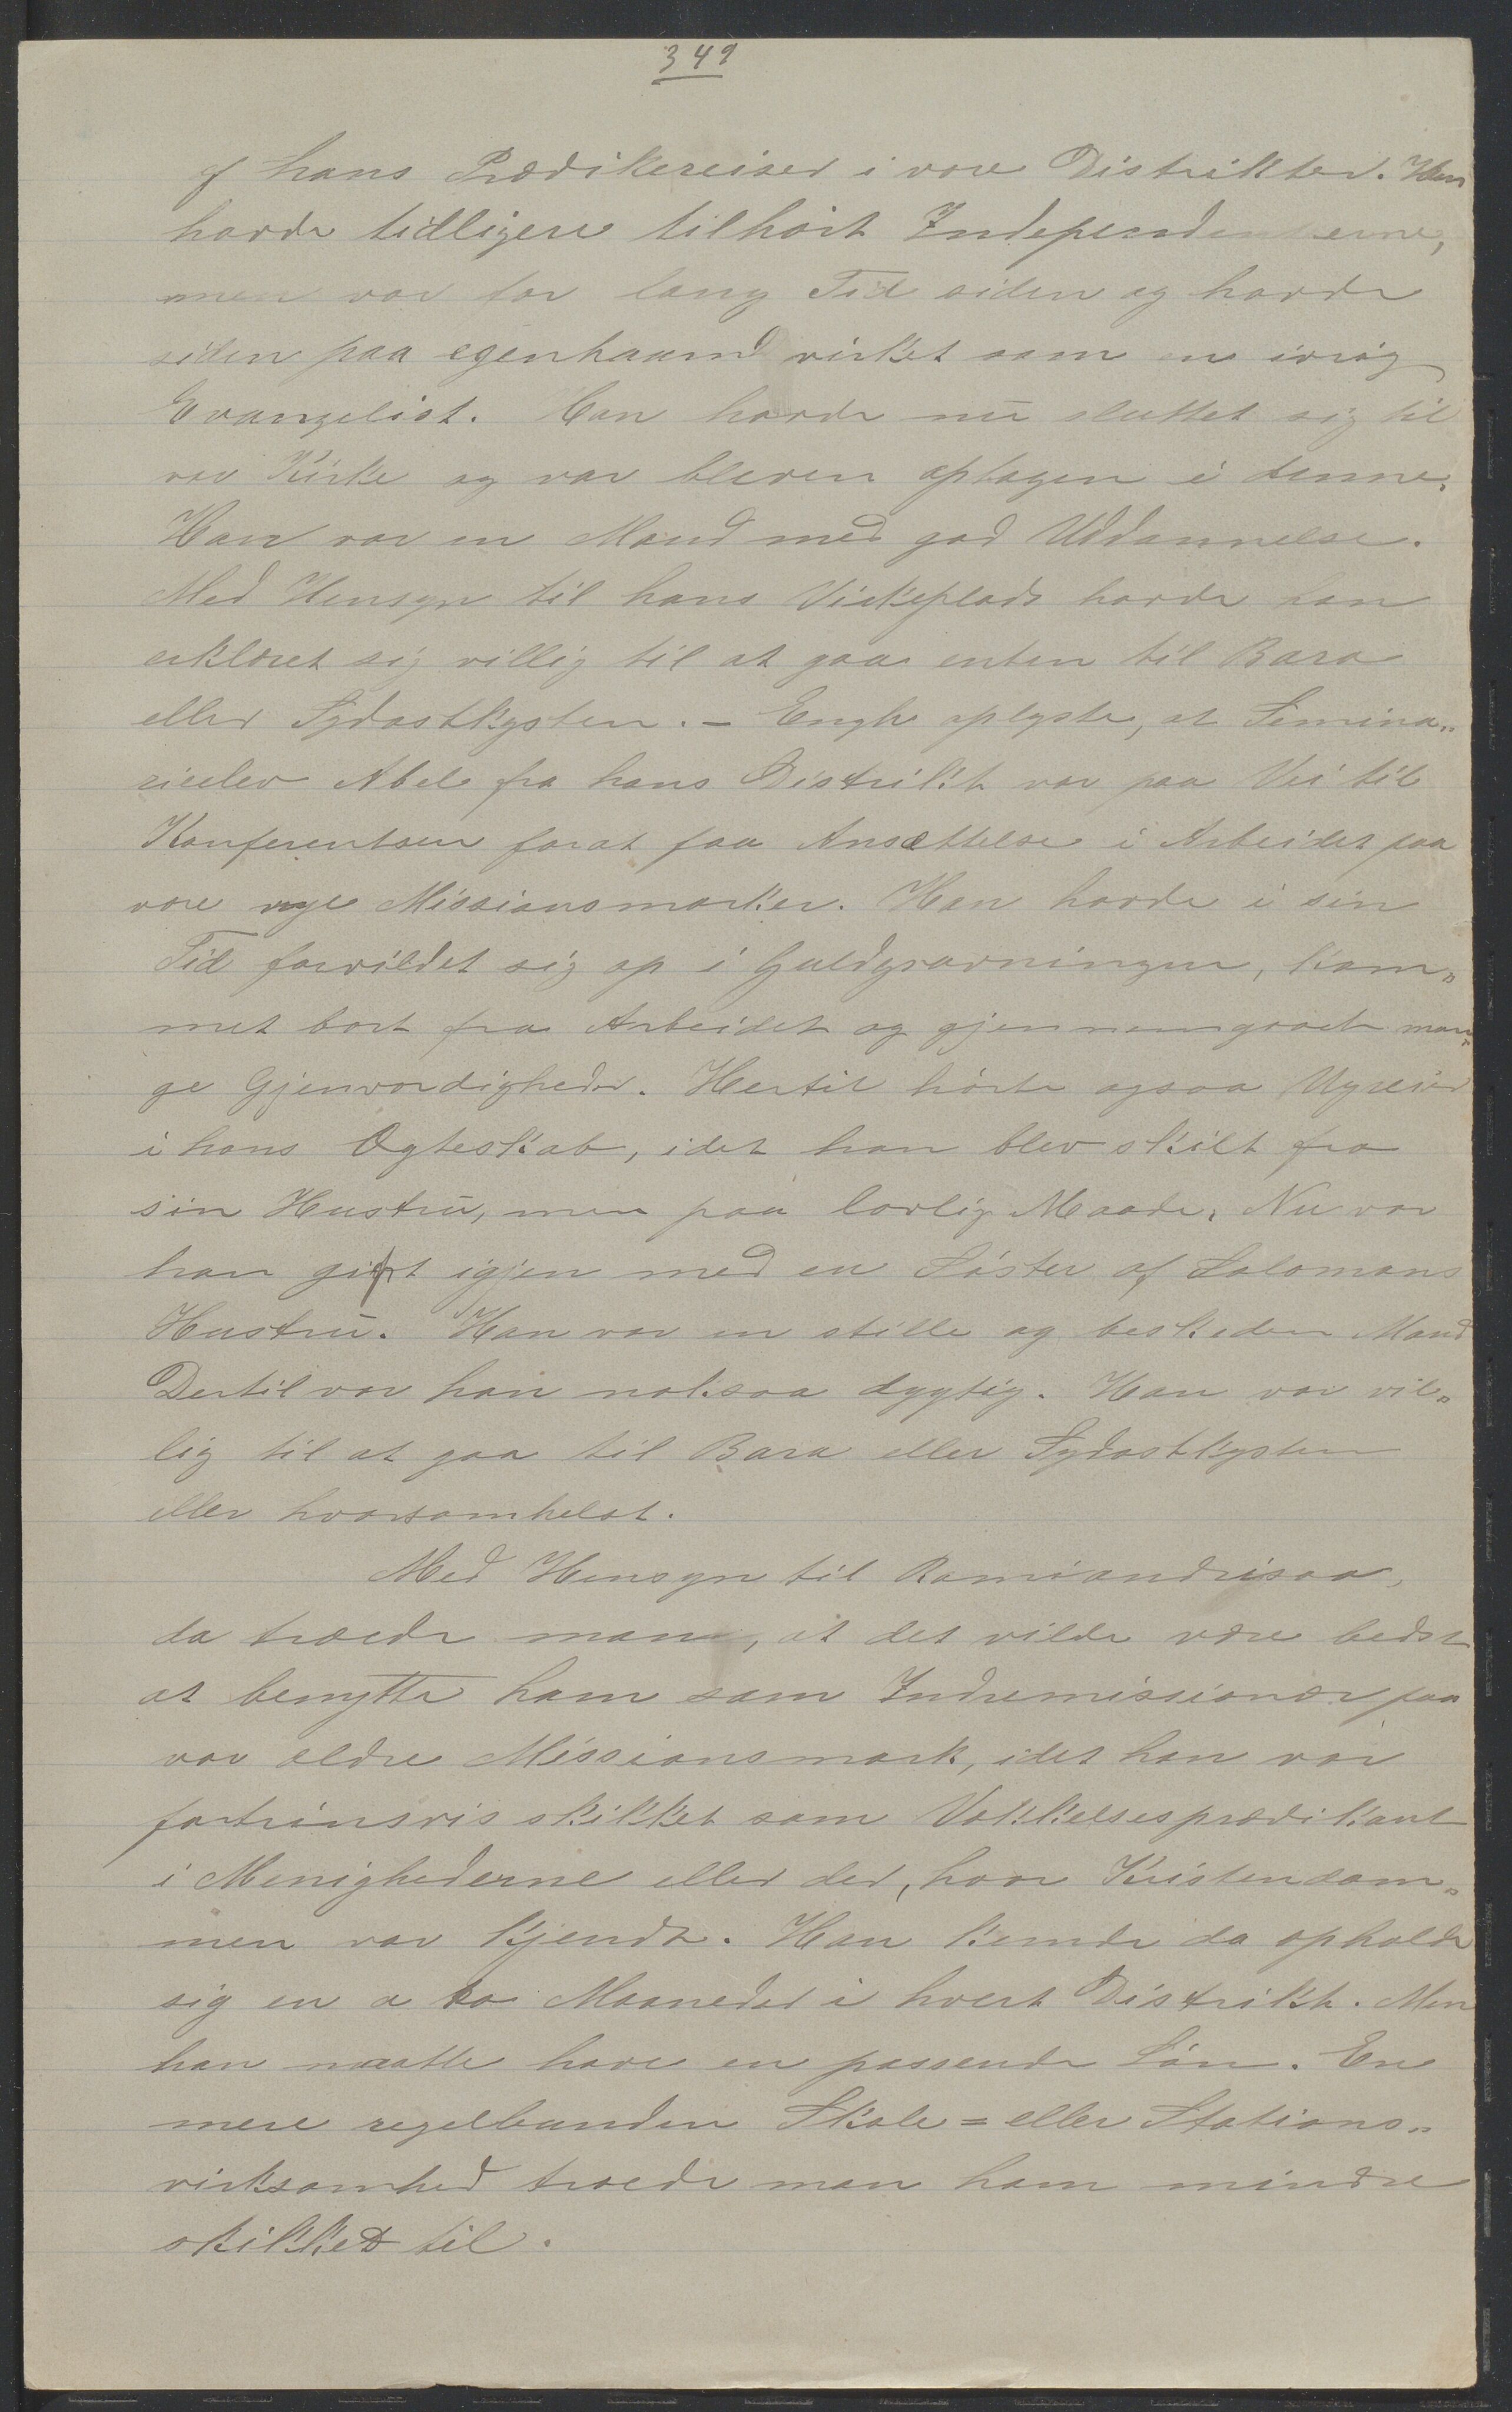 349
af hans Prædikereiser i vore Distrikter. Han
havde tidligere tilhørt Independenterne,
men var for lang Tid siden og havde
siden paa egenhaand virket som en ivrig
Evangelist. Han havde nu sluttet sig til
vor Kirke og var bleven optagen i denne.
Han var en Mand med god Uddannelse.
Med Hensyn til hans Virkeplads havde han
erklæret sig villig til at gaa enten til Bara
eller Sydostkysten. – Engh oplyste, at Semina„
rieelev Abel fra hans Distrikt var paa Vei til
Konferentsen forat faa Ansættelse i Arbeidet paa
vore nye Missionsmarker. Han havde i sin
Tid forvildet sig op i Guldgravningen, kom„
met bort fra Arbeidet og gjennemgaaet man„
ge Gjenvordigheder. Hertil hørte ogsaa Ugreier
i hans Ægteskab, idet han blev skilt fra
sin Hustru, men paa lovlig Maade. Nu var
han gift igjen med en Søster af Salomons
Hustru. Han var en stille og beskeden Mand
Dertil var han noksaa dygtig. Han var vil„
lig til at gaa til Bara eller Sydostkysten
eller hvorsomhelst.
Med Hensyn til Ramiandrisoa,
da troede man, at det vilde være bedst
at benytte ham som Indremissionær paa
vor ældre Missionsmark, idet han var
fortrinsvis skikket som Vækkelsesprædikant
i Menighederne eller der, hvor Kristendom„
men var kjendt. Han kunde da opholde
sig en a to Maaneder i hvert Distrikt. Men
han maatte have en passende Løn. En
mere regelbunden Skole= eller Stations„
virksomhed troede man ham mindre
skikket til.